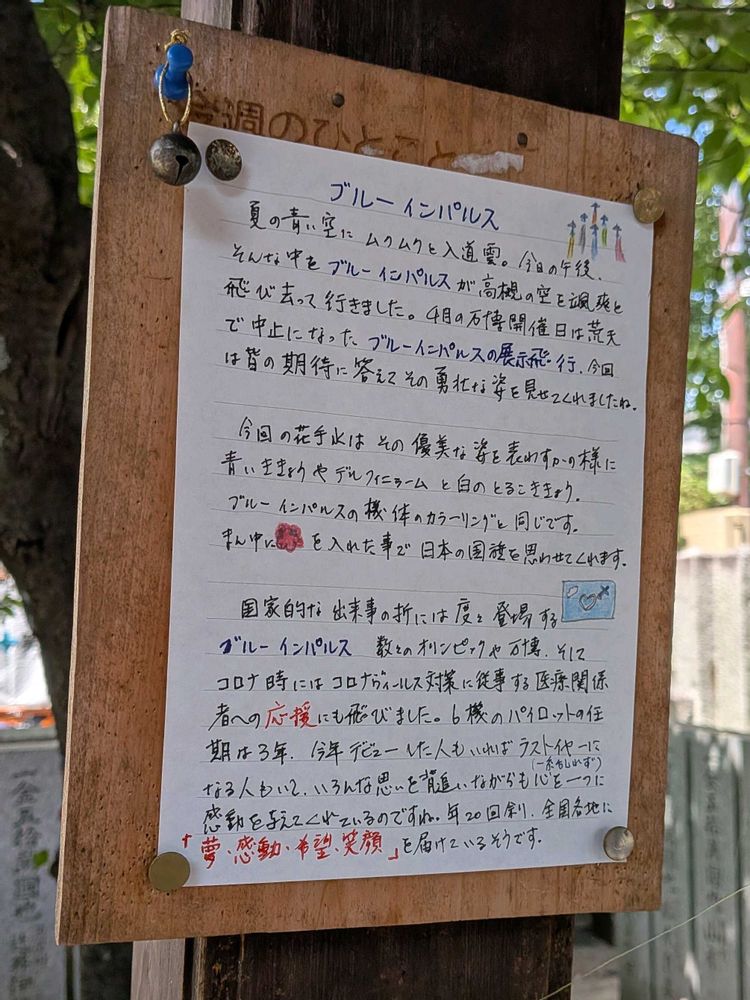 今週のひとこと
ブルーインパルス
夏の青い空に ムクムクと入道雲。今日の午後、
そんな中を ブルーインパルスが高槻の空を颯爽と
飛び去って行きました。4月の万博開催日は荒天
で中止になった ブルーインパルスの展示飛行、今回
は皆の期待に答えてその勇壮な姿を見せてくれましたね。
今回の花手水は その優美な姿を表わすかの様に
青いききょうやデルフィニュームと白のとるこききょう。
ブルーインパルスの機体のカラーリングと同じです。
まん中に を入れた事で日本の国旗を思わせてくれます。
国家的な出来事の折には度々登場する
ブルーインパルス 数々のオリンピックや万博、そして
コロナ時にはコロナヴィールス対策に従事する医療関係
者への応援にも飛びました。6機のパイロットの任
期は3年、今年デビューした人もいればラストイヤーに
なる人もいて、いろんな思いを背追いながらも心を一つに
(一糸もみだれず)
感動を与えてくれているのですね。年20回余り、全国各地に
「夢、感動、希望、笑顔」を届けているそうです。